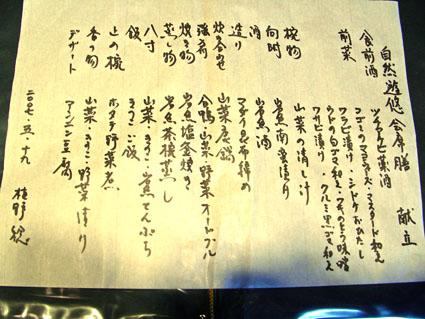 自然遊悠 会席膳 献立
食前酒 ツルアケビ薬酒
前菜 コゴミのマヨネーズ・マスタード和え
ワラビ漬け・シドケおひたし
ウドの白ゴマ和え・フキのとう味噌
ワサビ漬け・クルミ黒ゴマ和え
椀物 山菜の清し汁
向附 岩魚南蛮漬け
酒 岩魚酒
造り マダイ昆布締め
炊き合わせ 山菜
強肴 合鴨・山菜・野菜オードブル
焼き物 岩魚塩釜焼き
蒸し物 岩魚茶椀蒸し
八寸 山菜・きのこ・岩魚てんぷら
飯 きのこご飯
止め椀 ホタテ野菜煮
香の物 山菜・きのこ・野菜漬け
デザート アンニン豆腐
二〇〇七・五・十九